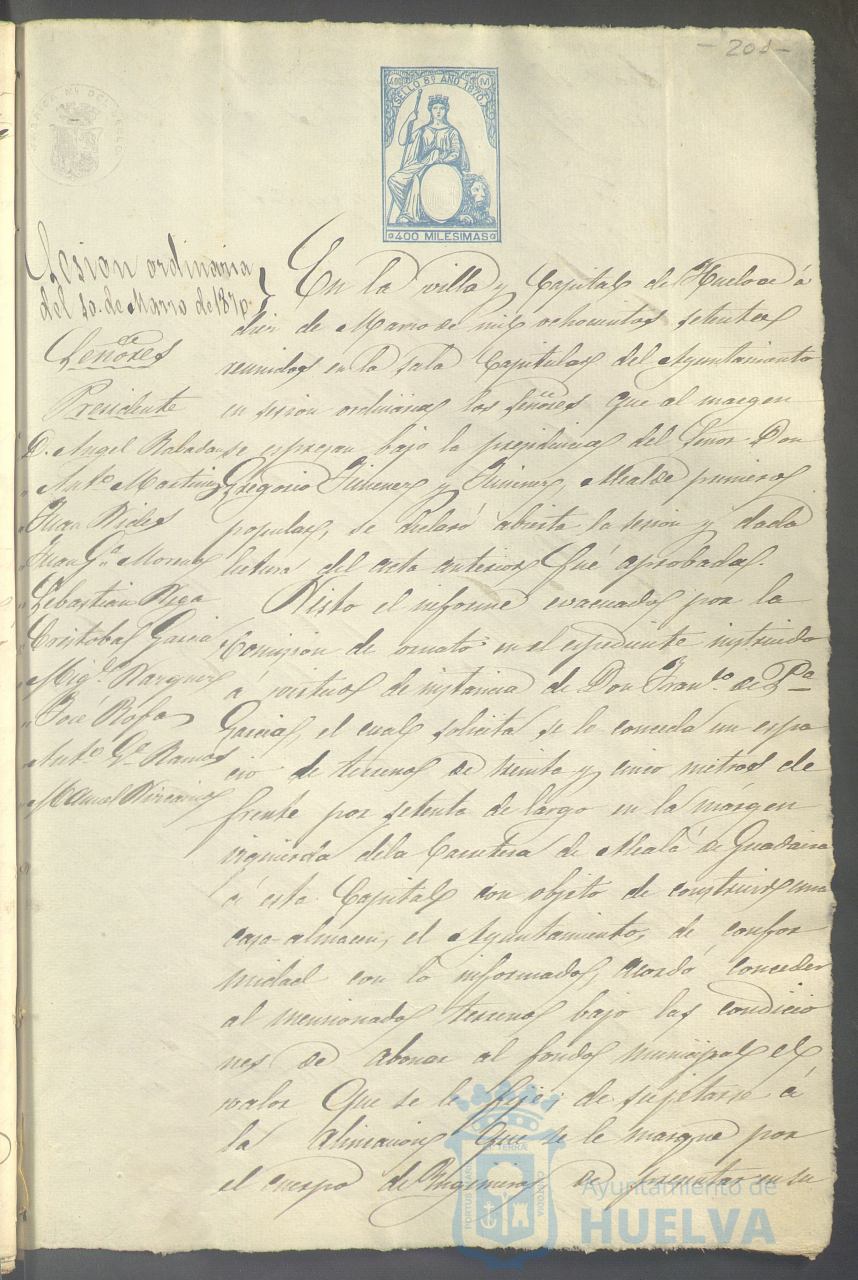 - 201 -
FABRICA Nl. DEL SELLO
400 M
SELLO 8º AÑO 1870
400 MILESIMAS
Sesion ordinaria
del 10. de Marzo de 1870.
Señores
Presidente
D. Angel Rabadan
" Antº Martinez
" Juan
" Juan Gª Moreno
" Sebastian Rega
" Cristobal Garcia
" Migl. Vazquez
" José Rofa
" Antº Gª Ramos
" Manuel
En la villa y Capital de Huelva á
diez de Marzo de mil ochocientos setenta
reunidos en la sala Capitular del Ayuntamiento
en sesion ordinaria los señores que al margen
se espresan bajo la presidencia del Señor Don
Gregorio Jimenez y Jimenez, Alcalde primero
popular, se declaró abierta la sesion y dada
lectura del acta anterior que aprobada.
Visto el informe evacuado por la
Comision de ornato en el espediente instruido
á virtud de instancia de Don Franº de Pª
Garcia, el cual solicita se le conceda un espa
cio de terreno de treinta y cinco metros de
frente por setenta de largo en la márgen
izquierda dela Carretera de Alcalá de Guadaira
á esta Capital con objeto de construir una
casa-almacen, el Ayuntamiento, de confor
midad con lo informado, acordó conceder
al mencionado terreno bajo las condicio
nes de abonar al fondo municipal el
valor que se le fije, de sujetarse á
la alineacion que se le marque por
el cuerpo de Ingenieros, de presentar en su
PORTUS MARIS ET TERRAE CUSTODIA
Ayuntamiento de
HUELVA